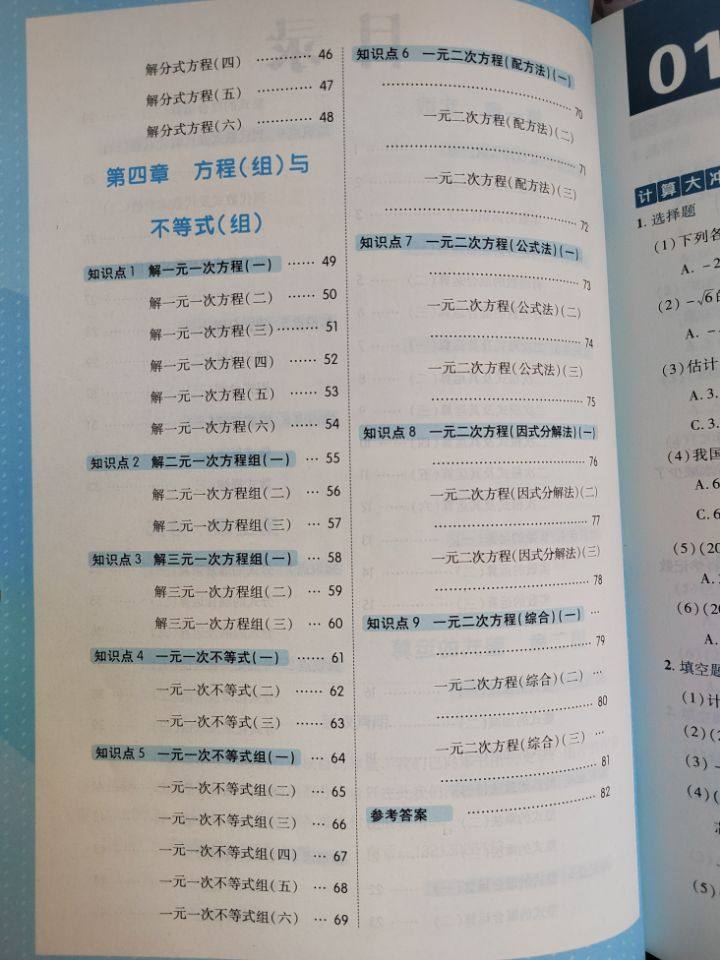 解分式方程(四) ………… 46
解分式方程(五) ………… 47
解分式方程(六) ………… 48
第四章 方程(组)与
不等式(组)
知识点1 解一元一次方程(一) …… 49
解一元一次方程(二) …… 50
解一元一次方程(三) ……… 51
解一元一次方程(四) …… 52
解一元一次方程(五) …… 53
解一元一次方程(六) …… 54
知识点2 解二元一次方程组(一) … 55
解二元一次方程组(二) … 56
解二元一次方程组(三) … 57
知识点3 解三元一次方程组(一) … 58
解三元一次方程组(二) … 59
解三元一次方程组(三) … 60
知识点4 一元一次不等式(一) …… 61
一元一次不等式(二) …… 62
一元一次不等式(三) …… 63
知识点5 一元一次不等式组(一) … 64
一元一次不等式组(二) … 65
一元一次不等式组(三) … 66
一元一次不等式组(四) … 67
一元一次不等式组(五) … 68
一元一次不等式组(六) … 69
知识点6 一元二次方程(配方法)(一)
………………………… 70
一元二次方程(配方法)(二)
………………………… 71
一元二次方程(配方法)(三)
………………………… 72
知识点7 一元二次方程(公式法)(一)
…………………… 73
一元二次方程(公式法)(二)
…………………… 74
一元二次方程(公式法)(三)
…………………… 75
知识点8 一元二次方程(因式分解法)(一)
…………………… 76
一元二次方程(因式分解法)(二)
…………………… 77
一元二次方程(因式分解法)(三)
…………………… 78
知识点9 一元二次方程(综合)(一) …
…………………… 79
一元二次方程(综合)(二) …
…………………… 80
一元二次方程(综合)(三) …
…………………… 81
参考答案 ………………… 82
01
计算大冲
1. 选择题
(1)下列各
A. -2
(2)-√6的
A. -
(3)估计
A. 3.
C. 3.
(4)我国
A. 6
C. 6
(5)(20
A.
(6)(20
A.
2. 填空题
(1)计
(2)(2
(3)-
(4)(
(5)